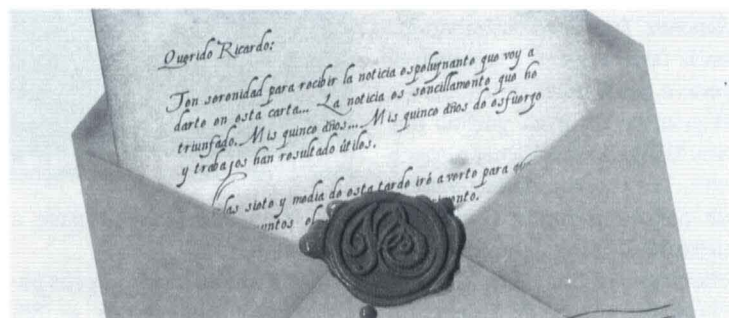 Querido Ricardo:
Ten serenidad para recibir la noticia espeluznante que voy a
darte en esta carta... La noticia es sencillamente que he
triunfado. Mis quince años... Mis quince años de esfuerzo
y trabajos han resultado útiles.
las siete y media de esta tarde iré a verte para